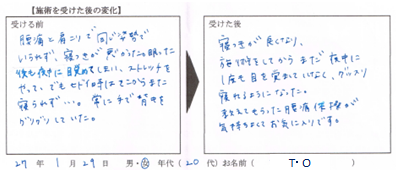 【施術を受けた後の変化】
受ける前
腰痛と肩こりで同じ姿勢で
いられず、寝つきが悪かった。眠った
後も夜中に目覚めてしまい、ストレッチを
やって、でも
寝られず…。常に手で背中を
グリグリしていた。
受けた後
寝つきが良くなり、
施術をしてからまだ夜中に
1度も目を覚ましていなく、グッスリ
寝れるようになった。
教えてもらった腰痛体操が
気持ちよくてお気に入りです。
27年1月29日 男・女 年代（20代）お名前（ T・O ）